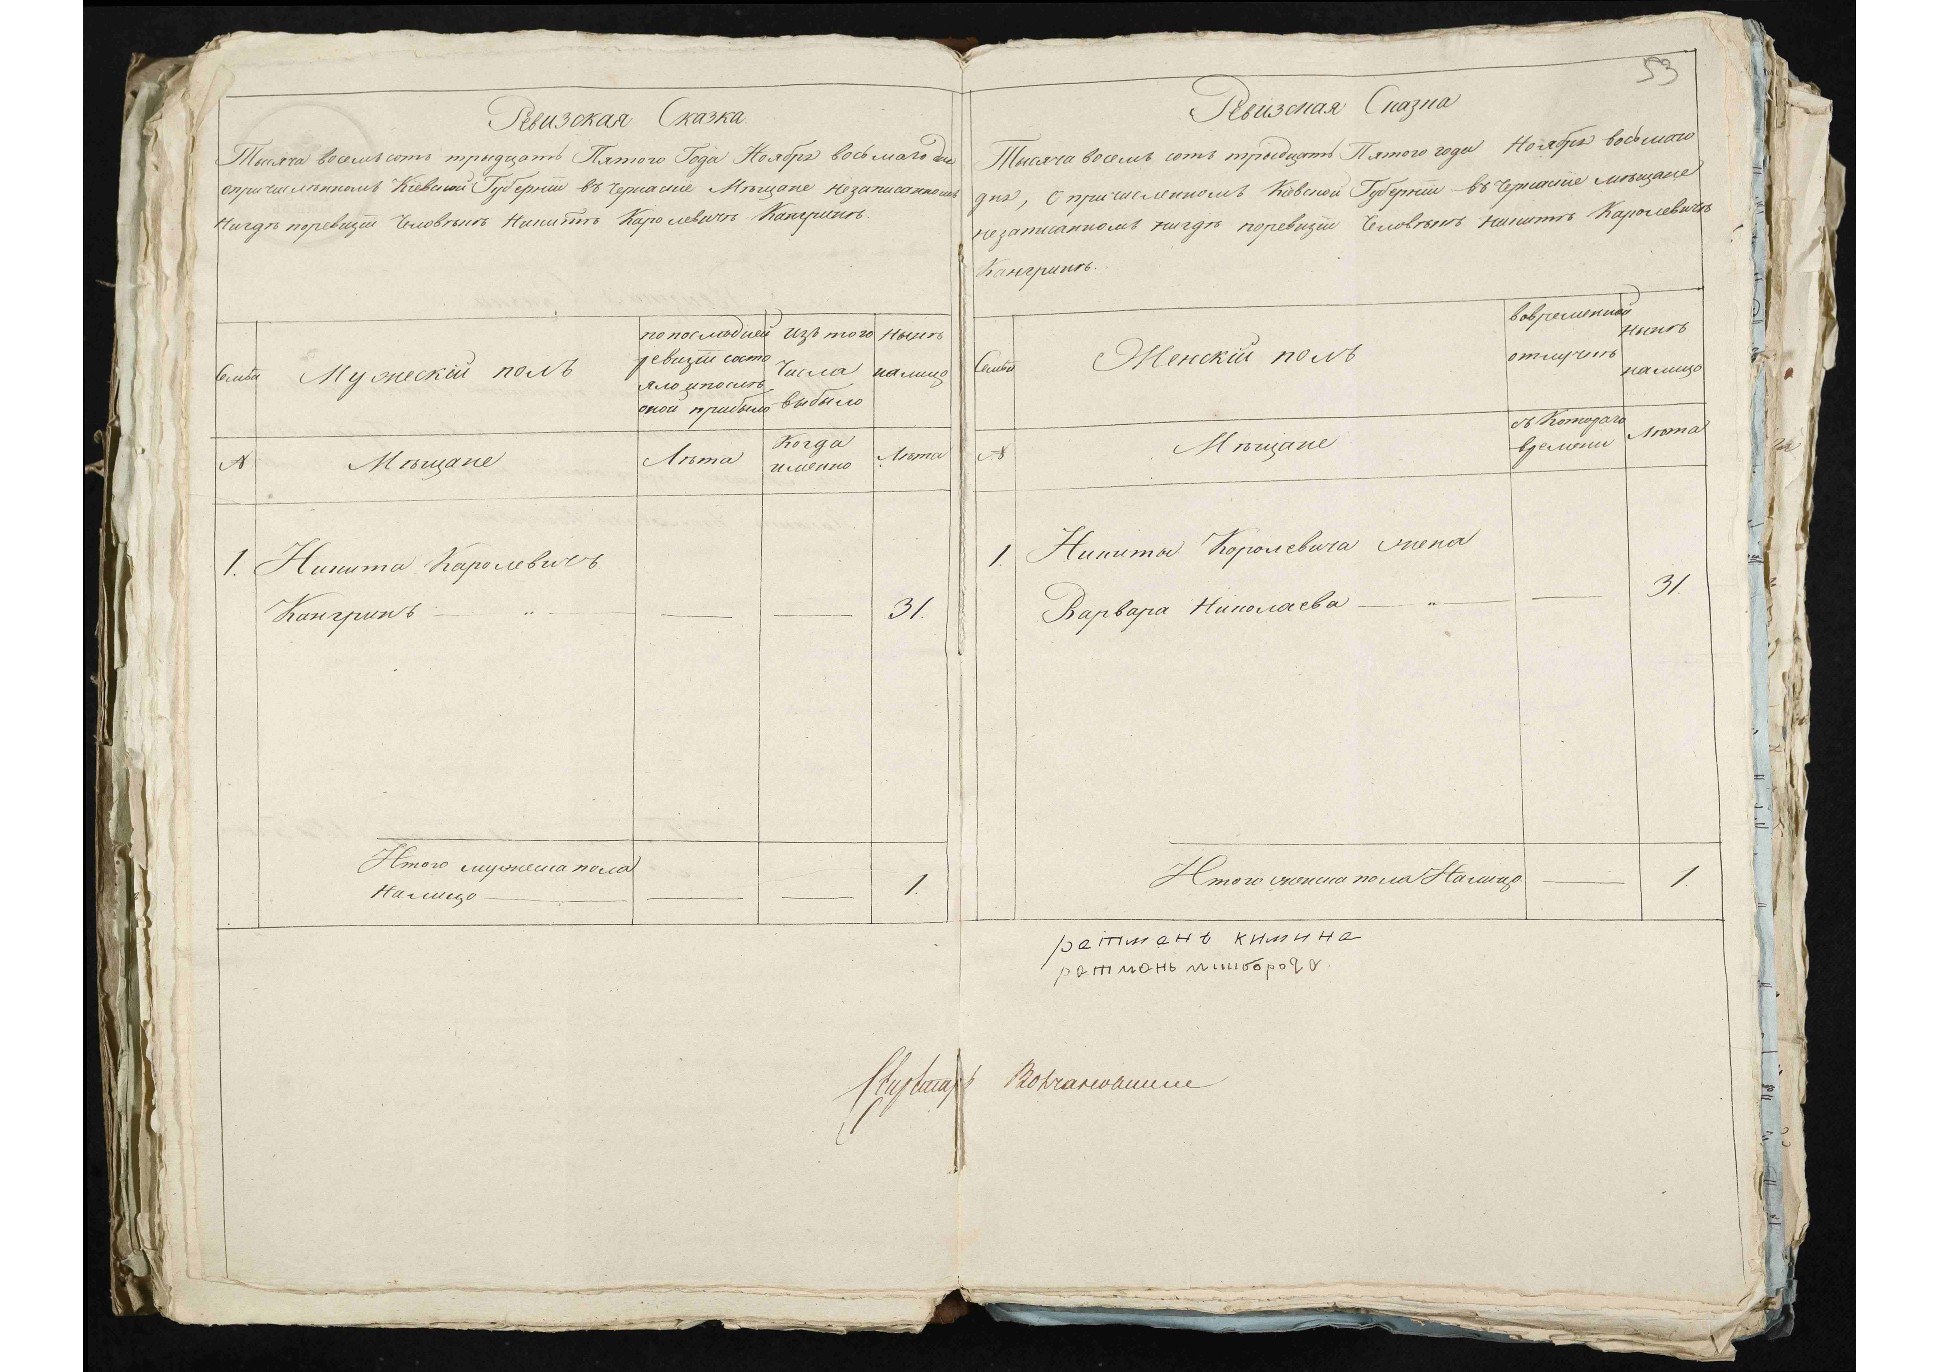 Ревизская Сказка
Тысяча восемъ сотъ трыдцать Пятого Года Ноября восьмаго дня
опричисленномъ Кіевской Губерніи въ Черкаские Мѣщане незаписанномъ
нигдѣ поревизіи Человѣкѣ Никитѣ Каролевичѣ Кангринѣ.
Семьи
Мужескій полъ
попоследней
ревизіи состо
яло ипослѣ
оной прибыло
Изъ того
Числа
выбыло
Нынѣ
налицо
№
Мѣщане
Лѣта
Когда
именно
Лѣта
1. Никита Каролевичъ
Кангринъ — " — — — 31.
Итого мужеска пола
Налицо — — — 1.
53
Ревизская Сказка
Тысяча восемъ сотъ трыдцать Пятого года Ноября восьмаго
дня, О причисленномъ Кіевской Губерніи въ Черкаские мѣщане
незаписанномъ нигдѣ поревизіи Человѣкѣ Никитѣ Каролевичѣ
Кангринѣ.
Семьи
Женскій полъ
вовременной
отлучкѣ
Нынѣ
налицо
№
Мѣщане
съ Котораго
времени
Лѣта
1. Никиты Королевича жена
Варвара Николаева — " — — 31.
Итого женска пола Налицо — 1.
ратманъ
ратманъ